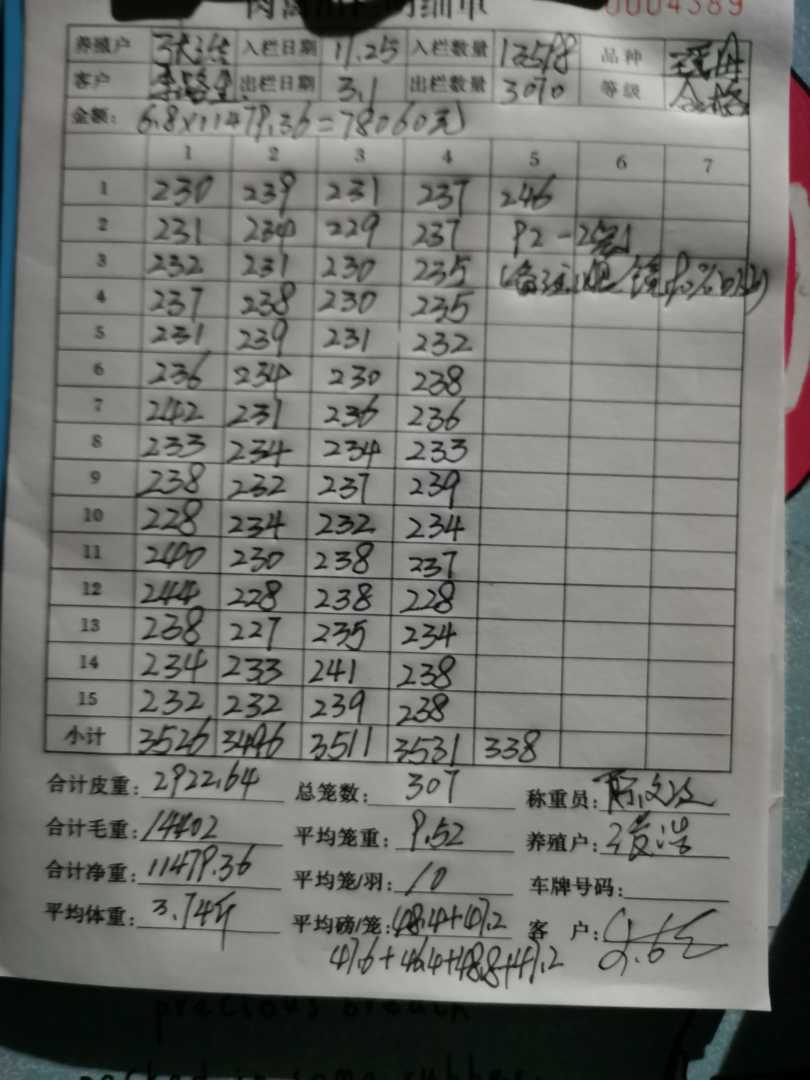 0004389
养殖户 入栏日期 11.25 入栏数量 13598 品种
客户 出栏日期 3.1 出栏数量 3070 等级 合格
金额: 6.8×11479.36=78060元
1 2 3 4 5 6 7
1 230 239 231 237 246
2 231 234 229 237 92-2只
3 232 231 230 235
4 237 238 230 235
5 231 239 231 232
6 236 234 230 238
7 242 231 236 236
8 233 234 234 233
9 238 232 237 239
10 228 234 232 234
11 240 230 238 237
12 244 228 238 228
13 238 227 235 234
14 234 233 241 238
15 232 232 239 238
小计 3526 3496 3511 3531 338
合计皮重: 2922.64 总笼数: 307 称重员:
合计毛重: 14402 平均笼重: 9.52 养殖户:
合计净重: 11479.36 平均笼/羽: 10 车牌号码:
平均体重: 3.74斤 平均磅/笼: 48.4+47.2 客 户:
47.6+46.4+48.8+47.2
precious breath
packed in some rubber